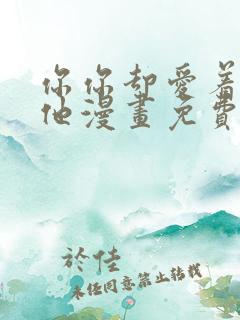 你你却愛着
他漫畫免費
於佳
未经同意禁止转载